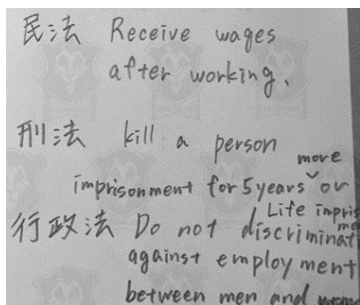 民法 Receive wages
after working.
刑法 kill a person
more
imprisonment for 5 years or
Life impris
行政法 Do not discriminat
against employment
between men and